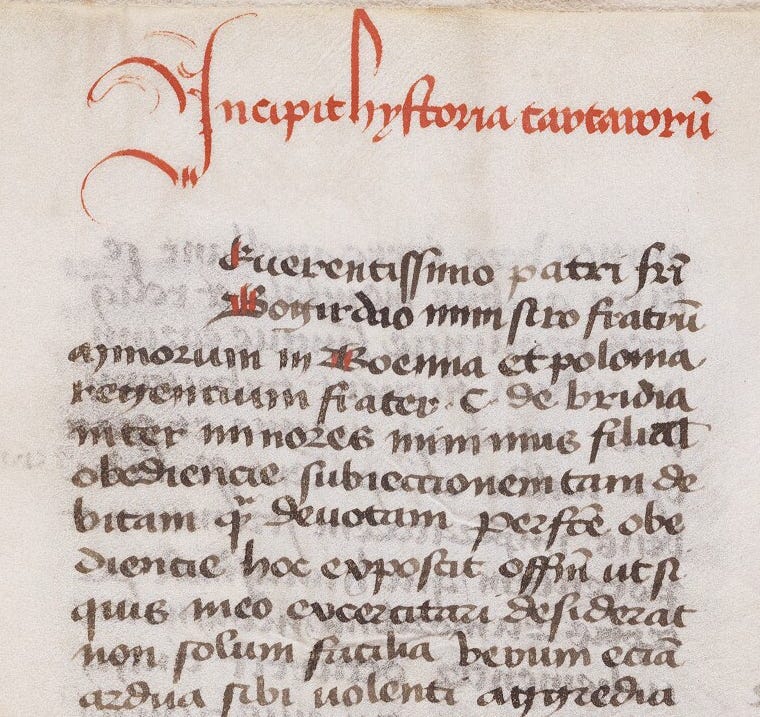 Incipit hystoria tartarorū
Euerentissimo patri fr̄i
ministro fratrū
in Boemia et polonia
frater · C · de bridia
inter minores minimus filial
obediencie subieccionem tam de
bitam qͣ deuotam perfcē obe
diencie hoc exposcit offm̄ ut si
quis in eo exercitari desiderat
non solum facilia verum eciā
ardua sibi uolenti aggredia